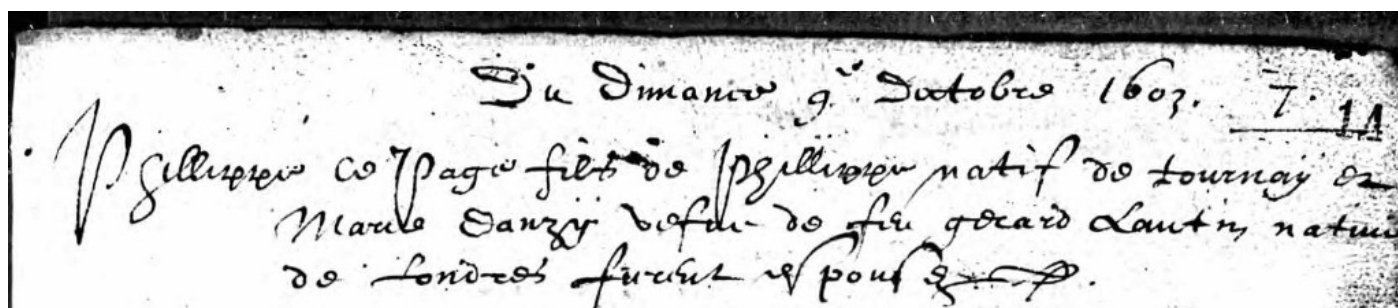 Du Dimance 9e Doctobre 1603. 7. 14
Phillippe Le Page fils de Phillippe natif de tournay et
Marie Danzy vefue de feu gerard Lautin natiue
de Londres furent espousez